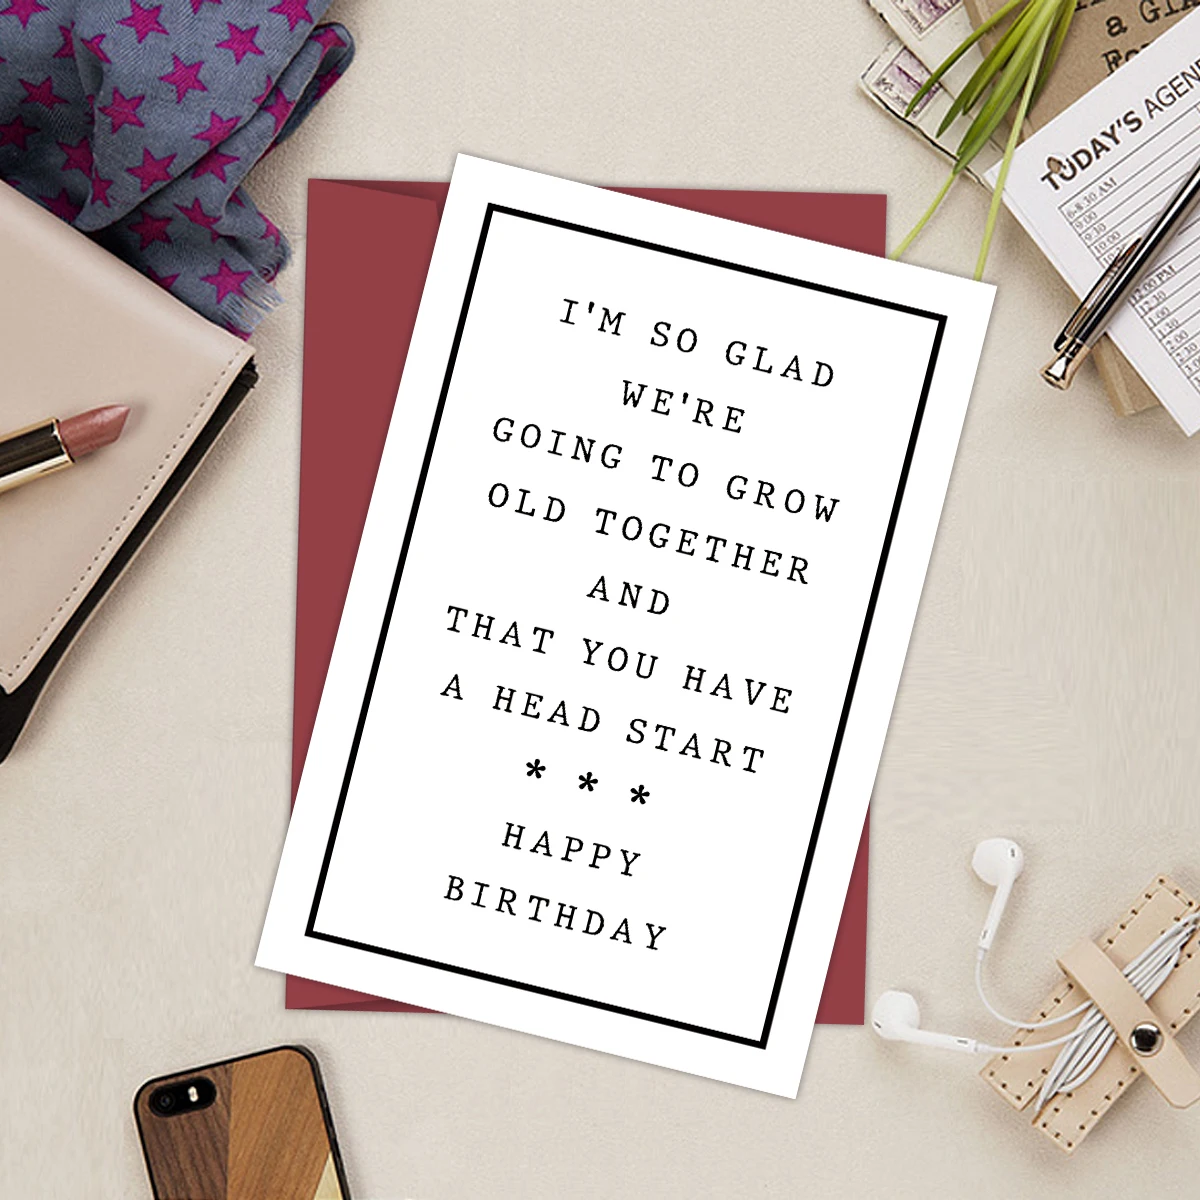 I'M SO GLAD
WE'RE
GOING TO GROW
OLD TOGETHER
AND
THAT YOU HAVE
A HEAD START
* * *
HAPPY
BIRTHDAY
TODAY'S AGEN
6-8:30 AM
9:00
9:30
10:00
12:00 PM
12:30
1:00
1:30
2:00
2:30
a GIA